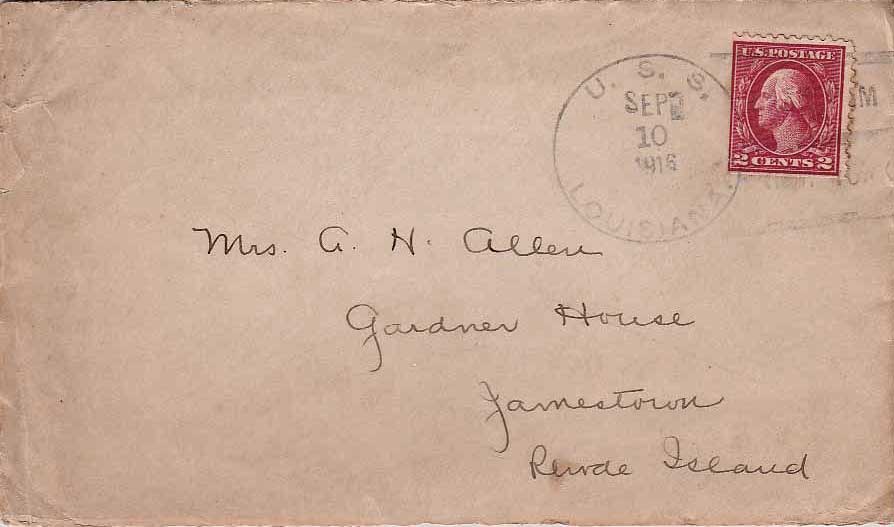 U. S. S.
SEP
10
1916
LOUISIANA
U.S. POSTAGE
2 CENTS 2
M
Mrs. A. H. Allen
Gardner House
Jamestown
Rhode Island